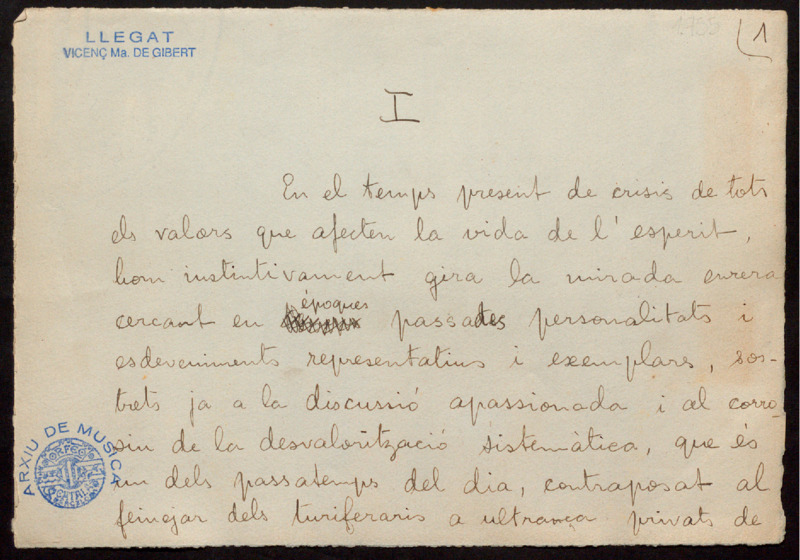 LLEGAT
VICENÇ Ma. DE GIBERT
1935
1
I
En el temps present de crisis de tots
els valors que afecten la vida de l'esperit,
hom instintivament gira la mirada enrera
èpoques
cercant en passades personalitats i
esdeveniments representatius i exemplars, sos-
trets ja a la discussió apassionada i al corro-
siu de la desvalorització sistemàtica, que és
un dels passatemps del dia, contraposat al
feinejar dels turiferaris a ultrança privats de
ARXIU DE MUSICA
ORFEÓ CATALÀ